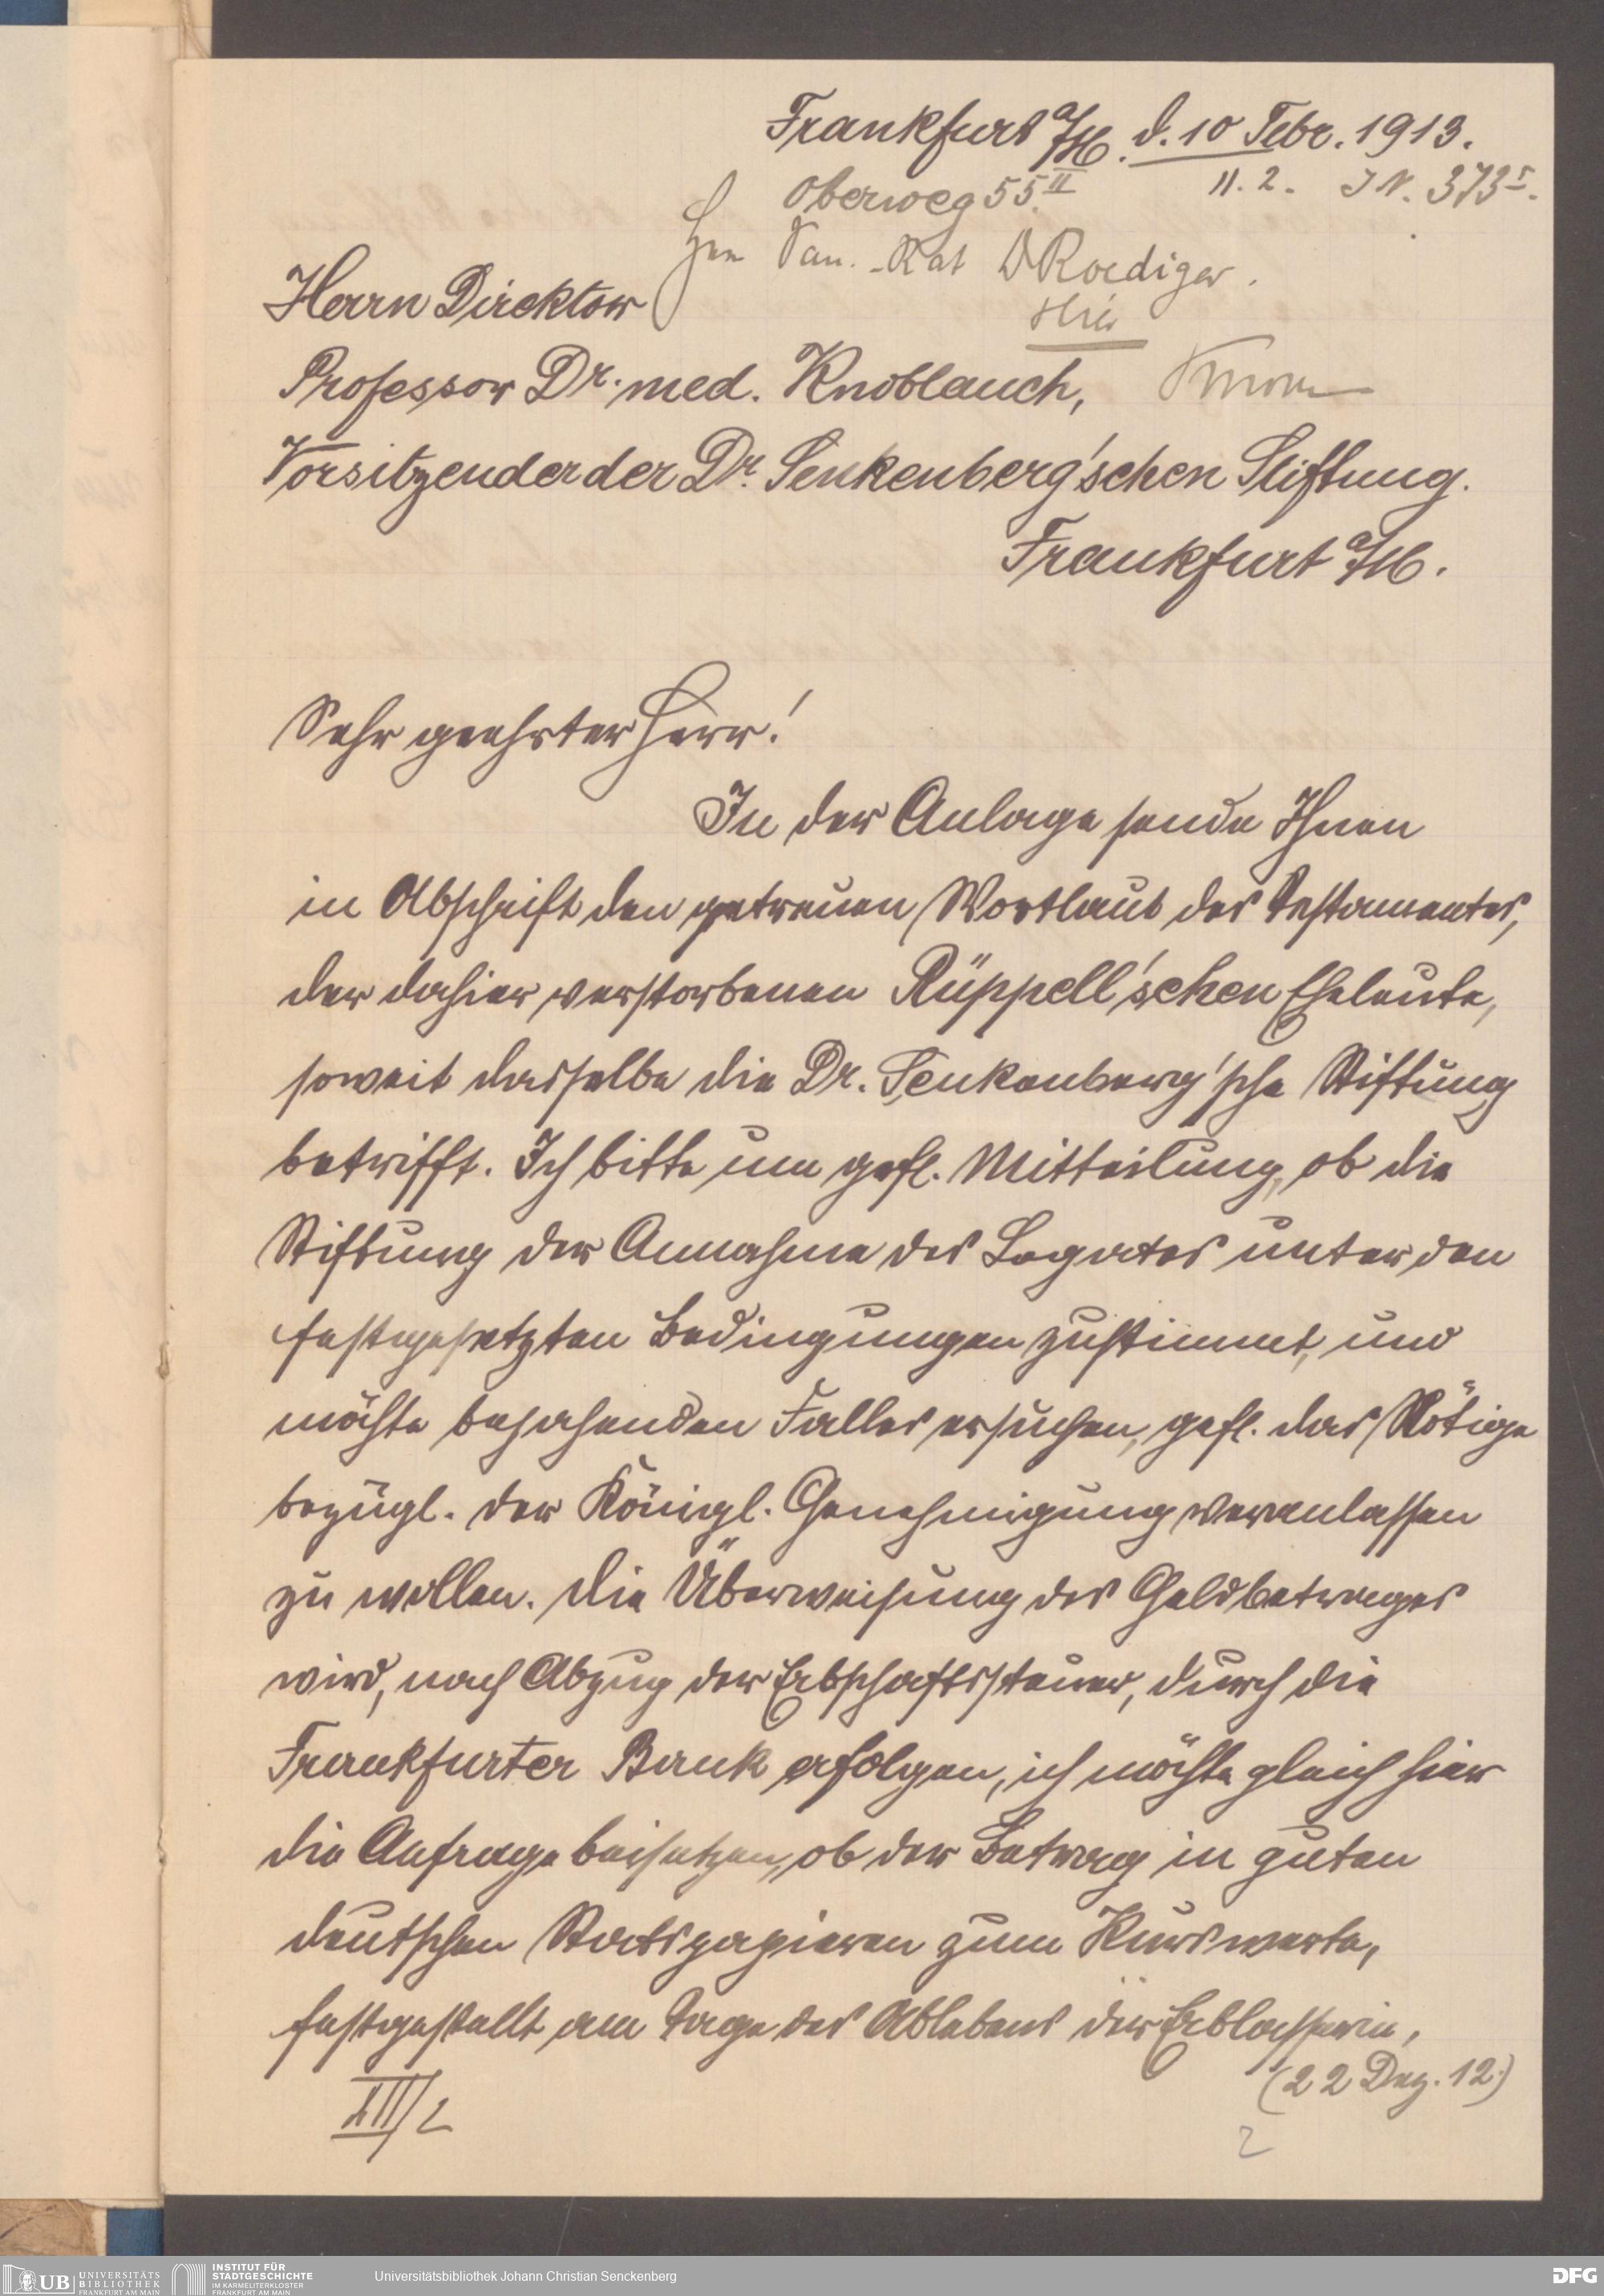 Frankfurt a/M. d. 10 Febr. 1913.
Oberweg 55 II
11. 2. J N. 373 I.
Hrn San.-Rat D Roediger.
Hier
Herrn Direktor
Professor Dr. med. Knoblauch,
Vorsitzender der Dr. Senkenberg'schen Stiftung.
Frankfurt a/M.
Sehr geehrter Herr!
In der Anlage sende Ihnen
in Abschrift den getreuen Wortlaut des Testamentes,
der dahier verstorbenen Rüppell'schen Eheleute,
soweit dasselbe die Dr. Senkenberg'sche Stiftung
betrifft. Ich bitte um gefl. Mitteilung, ob die
Stiftung der Annahme des Legates unter den
festgesetzten Bedingungen zustimmt, und
möchte bejahenden Falles ersuchen, gefl. das Nötige
bezügl. der Königl. Genehmigung veranlassen
zu wollen. Die Überweisung des Geldbetrages
wird, nach Abzug der Erbschaftssteuer, durch die
Frankfurter Bank erfolgen, ich möchte gleich hier
die Anfrage beisetzen, ob der Betrag in guten
deutschen Statspapieren zum Kurswerte,
festgestellt am Tage des Ablebens der Erblasserin,
(22 Dez. 12.)
XII/2
2
UB UNIVERSITÄTS
BIBLIOTHEK
FRANKFURT AM MAIN
INSTITUT FÜR
STADTGESCHICHTE
IM KARMELITERKLOSTER
FRANKFURT AM MAIN
Universitätsbibliothek Johann Christian Senckenberg
DFG